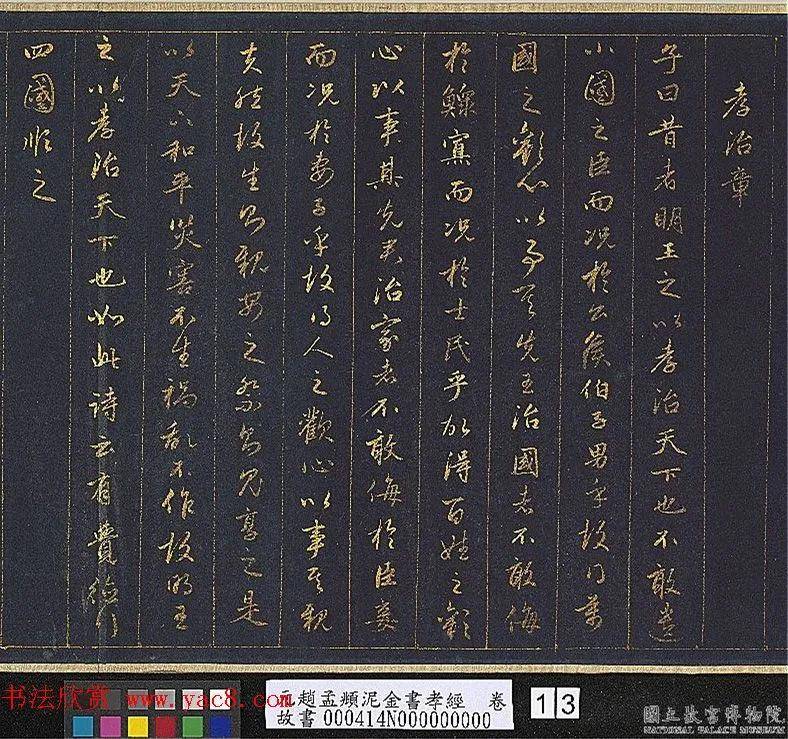 孝治章
子曰昔者明王之以孝治天下也不敢遺
小國之臣而况於公侯伯子男乎故得萬
國之歡心以事其先王治國者不敢侮
於鰥寡而况於士民乎故得百姓之歡
心以事其先君治家者不敢侮於臣妾
而况於妻子乎故得人之歡心以事其親
夫然故生則親安之祭則鬼享之是
以天下和平災害不生禍亂不作故明王
之以孝治天下也如此詩云有覺德行
四國順之
书法欣赏 www.yac8.com
元趙孟頫泥金書孝經 卷
故書000414N000000000
13
國立故宮博物院
NATIONAL PALACE MUSEUM